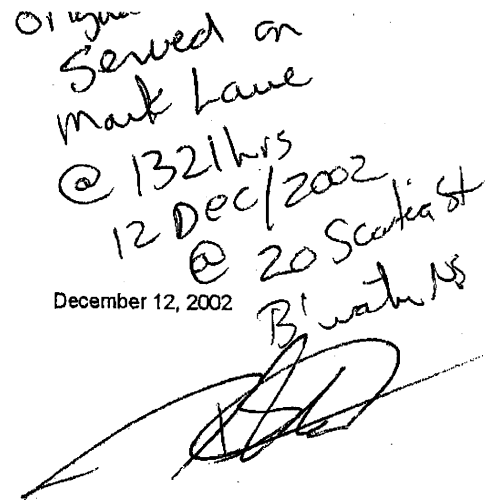 Original
Served on
Mark Lane
@ 1321hrs
12 Dec/2002
@ 20 Scotia St
B'water NS
December 12, 2002